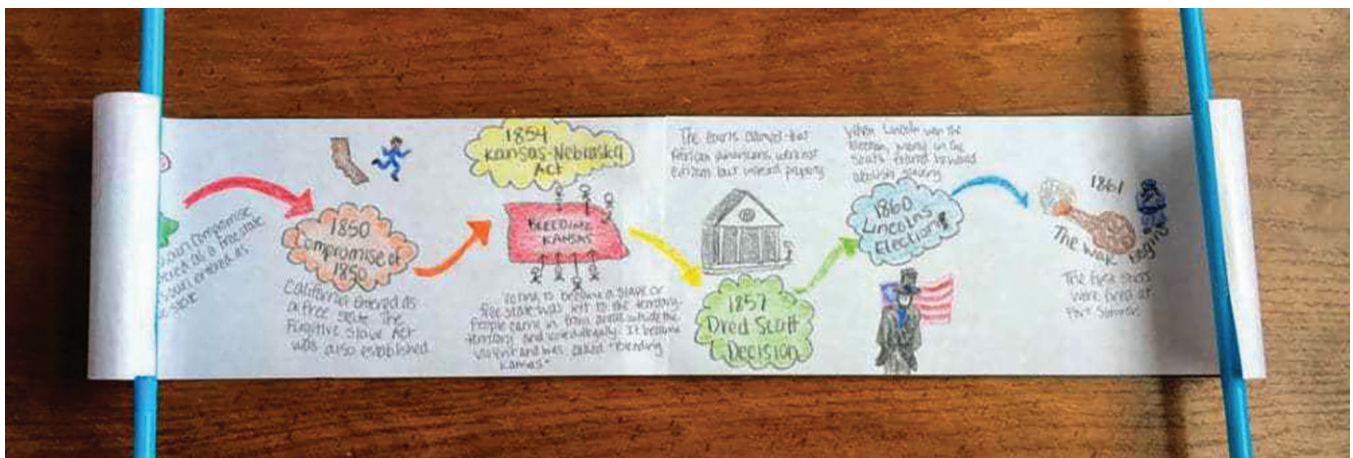 Compromise
as a free state
entered as
state
1850
Compromise of
1850
California entered as
a free state. The
Fugitive Slave Act
was also established
1854
Kansas-Nebraska
Act
BLEEDING
KANSAS
Voting to become a slave or
free state was left to the territory.
People came in from areas outside the
territory and voted illegally. It became
violent and was called "Bleeding
Kansas."
The courts claimed that
African Americans were not
citizens but instead property
1857
Dred Scott
Decision
When Lincoln won the
election, many in the
South feared he would
abolish slavery
1860
Lincolns
Election
1861
The War Begins
The first shots
were fired at
Fort Sumter